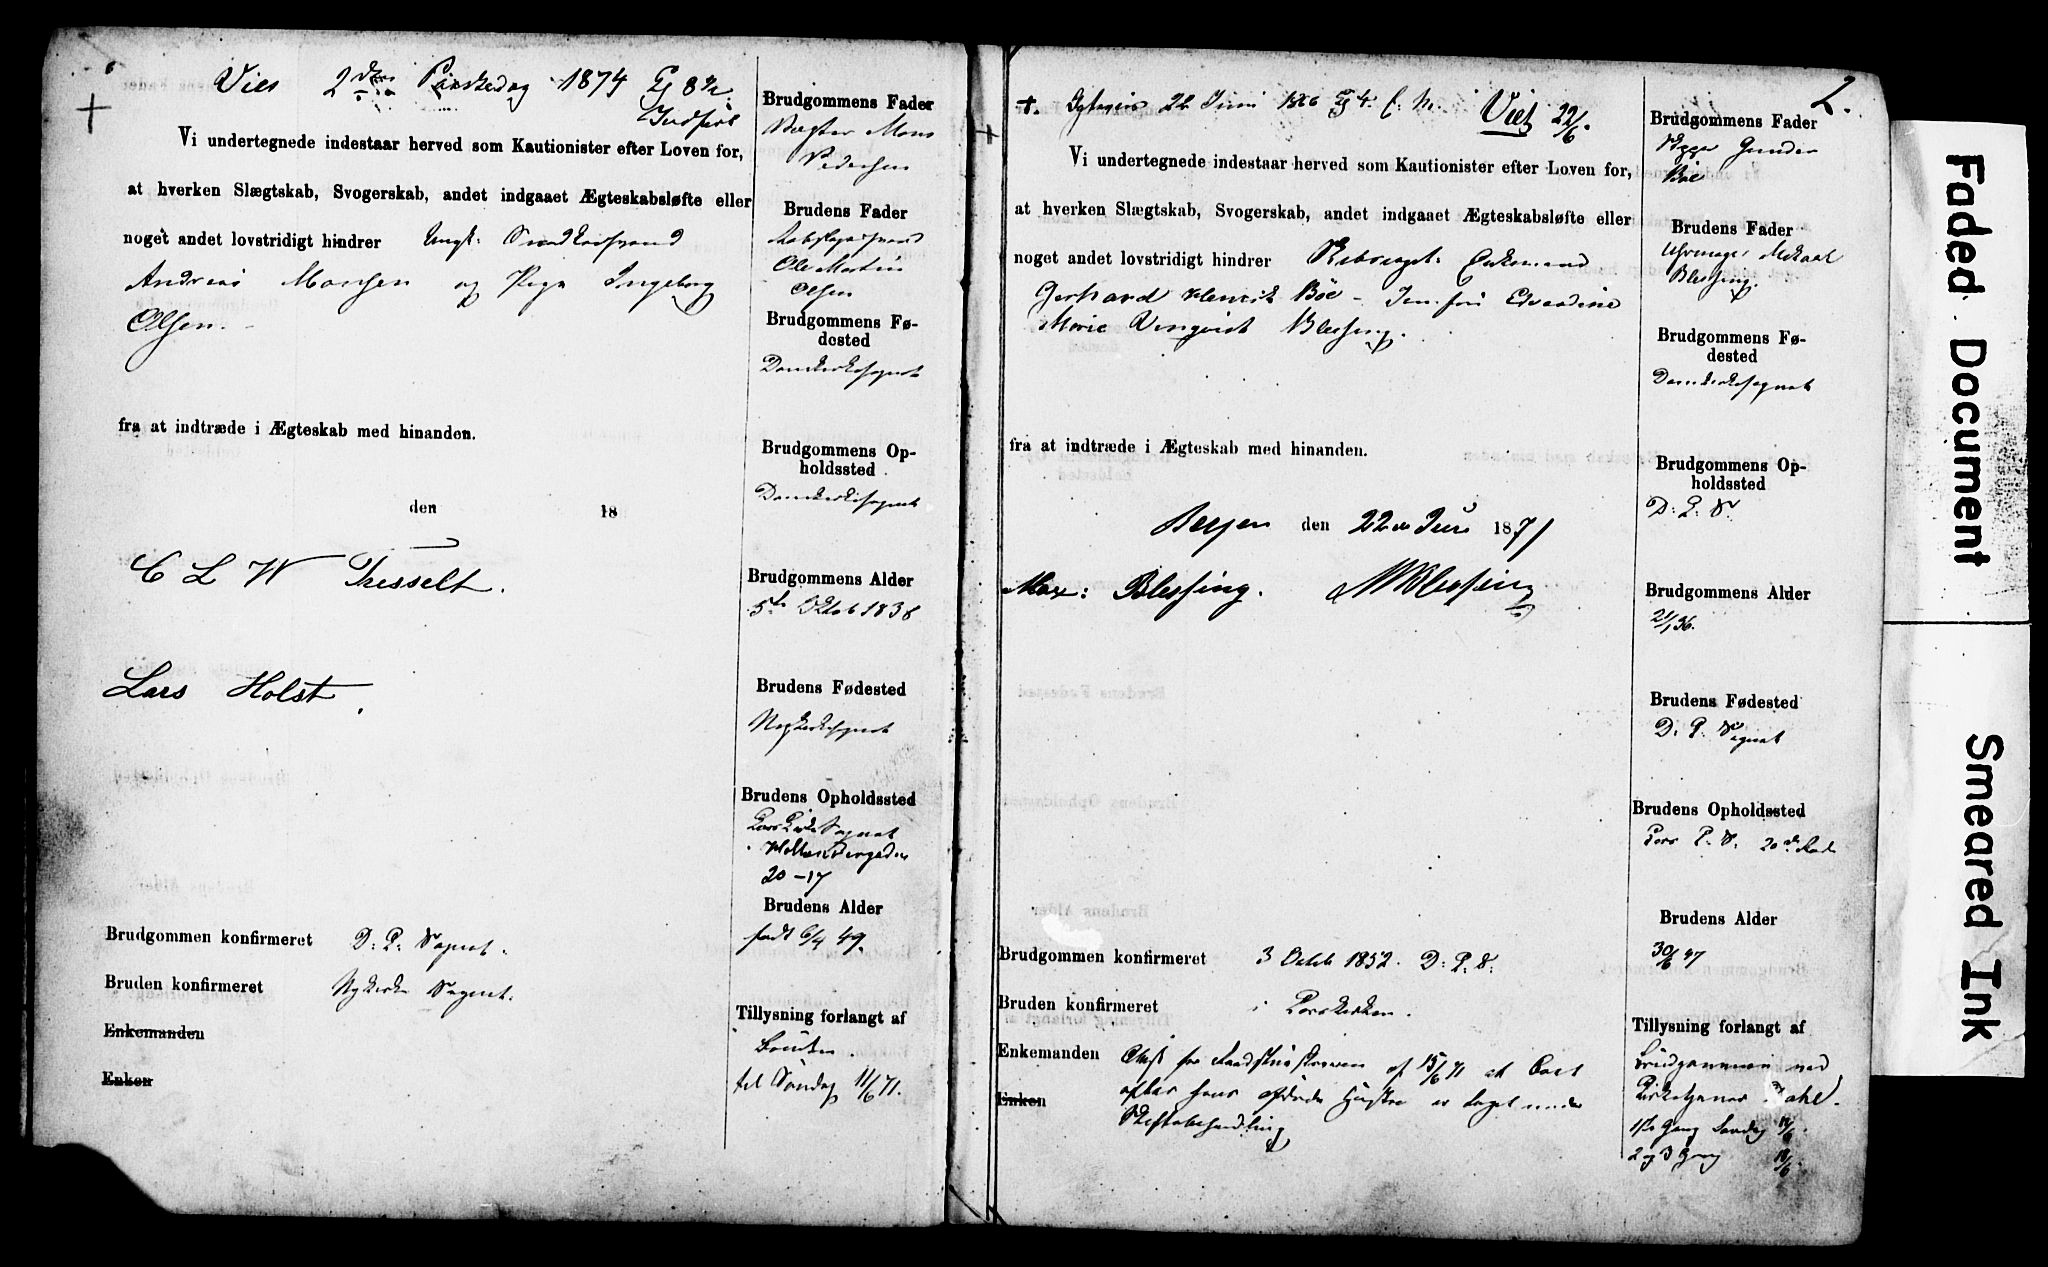 Vies 2den Paaskedag 1874 Kl 8½
Indført
Vi undertegnede indestaar herved som Kautionister efter Loven for,
at hverken Slægtskab, Svogerskab, andet indgaaet Ægteskabsløfte eller
noget andet lovstridigt hindrer Ungk:
Andreas Monsen og Pige Ingeborg
Olsen.
fra at indtræde i Ægteskab med hinanden.
den 18
C L W Thesselt.
Lars Holst.
Brudgommen konfirmeret D: K: Sognet.
Bruden konfirmeret Nykirke Sognet.
Enkemanden
Enken
Brudgommens Fader
Mons
Pedersen
Brudens Fader
Ole Martin
Olsen
Brudgommens Fø-
dested
Domkirkesognet
Brudgommens Op-
holdssted
Domkirkesognet
Brudgommens Alder
5te Octob 1838
Brudens Fødested
Nykirkesognet
Brudens Opholdssted
Korskirke Sognet
Hollendergaden
20-17
Brudens Alder
født 6/4 49.
Tillysning forlangt af
Bruden.
til Søndag 11/6 71.
2.
22 Juni Kl 4 E. M. Viet 22/6.
Vi undertegnede indestaar herved som Kautionister efter Loven for,
at hverken Slægtskab, Svogerskab, andet indgaaet Ægteskabsløfte eller
noget andet lovstridigt hindrer Enkemand
Gerhard Henrik Böe - Jomfru Edvardine
Marie Blessing.
fra at indtræde i Ægteskab med hinanden.
Bergen den 22de Juni 1871
Max: Blessing. M Blessing
Brudgommen konfirmeret 3 Octob 1852. D: K: S:
Bruden konfirmeret i Korskirken.
Enkemanden Attest fra Raadstueskriveren af 15/6 71 at Boet
Enken efter hans afdøde Hustru er taget under
Skiftebehandling
Brudgommens Fader
Gunder
Böe
Brudens Fader
Uhrmager Mikael
Blessing.
Brudgommens Fø-
dested
Domkirkesognet
Brudgommens Op-
holdssted
D: K: S.
Brudgommens Alder
21/1 36.
Brudens Fødested
D. K. Sognet
Brudens Opholdssted
Kors K. S. 20de Rode
Brudens Alder
30/6 47
Tillysning forlangt af
Brudgommen ved
Kirketjener Dahl.
1ste Gang Søndag
2 og 3 Gang 18/6.
Faded Document
Smeared Ink